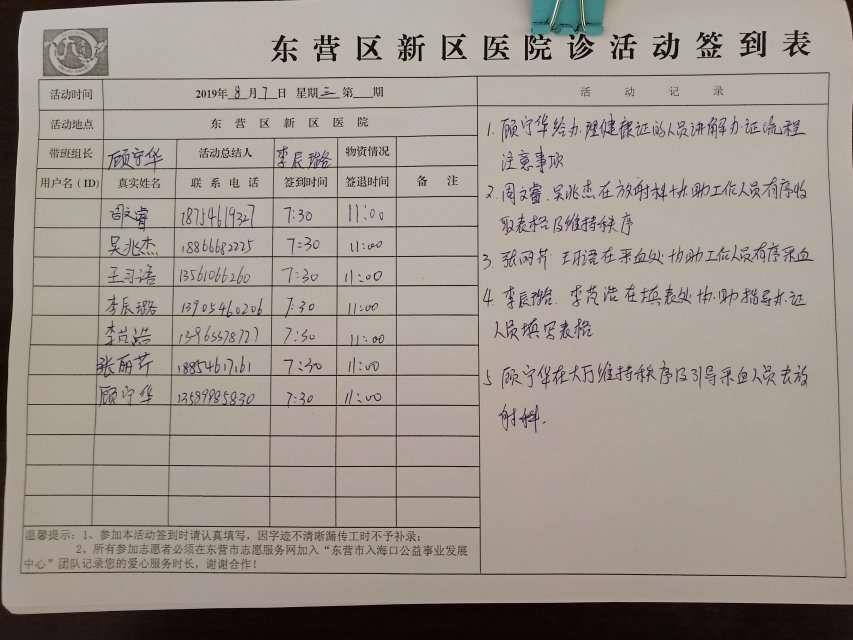 东营区新区医院诊活动签到表
活动时间 2019年 8 月 7 日 星期 三 第 期
活动地点 东营区新区医院
带班组长 顾宁华 活动总结人 李辰璐 物资情况
用户名(ID) 真实姓名 联系电话 签到时间 签退时间 备注
周文睿 18754619327 7:30 11:00
吴兆杰 18866682225 7:30 11:00
王习语 13561066260 7:30 11:00
李辰璐 13905460206 7:30 11:00
李茂浩 7:30 11:00
张丽芹 18854617161 7:30 11:00
顾宁华 13589985830 7:30 11:00
温馨提示:1、参加本活动签到时请认真填写,因字迹不清晰漏传工时不予补录;
2、所有参加志愿者必须在东营市志愿服务网加入“东营市入海口公益事业发展
中心”团队记录您的爱心服务时长,谢谢合作!
活动记录
1. 顾宁华给办理健康证的人员讲解办证流程
注意事项
2. 周文睿、吴兆杰在放射科协助工作人员有序收
取表格及维持秩序
3. 张丽芹 王习语在采血处协助工作人员有序采血
4. 李辰璐、李茂浩在填表处协助指导办证
人员填写表格
5. 顾宁华在大厅维持秩序及引导采血人员去放
射科.